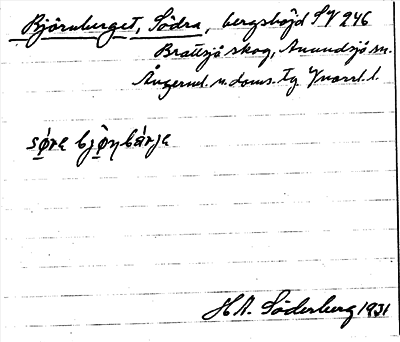 Björnberget, Södra, bergshöjd SV 246
Brattsjö skog, Anundsjö sn.
Ångerml. n. doms. tg Vnorrl. l.
sø̀rɐ bjö̀ɳbárjɐ
H. A. Söderberg 1931